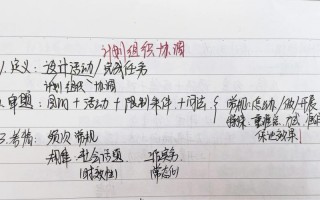 计划组织协调
1. 定义：设计活动/完成任务
计划 组织 协调
2. 审题：图问 + 活动 + 限制条件 + 问法 { 常规：活动/做/开展
特殊：重难点、方式、准备
保证效果
3. 考情：频次 常规
规律 社会话题 工作实务
(时效性) (常态化)